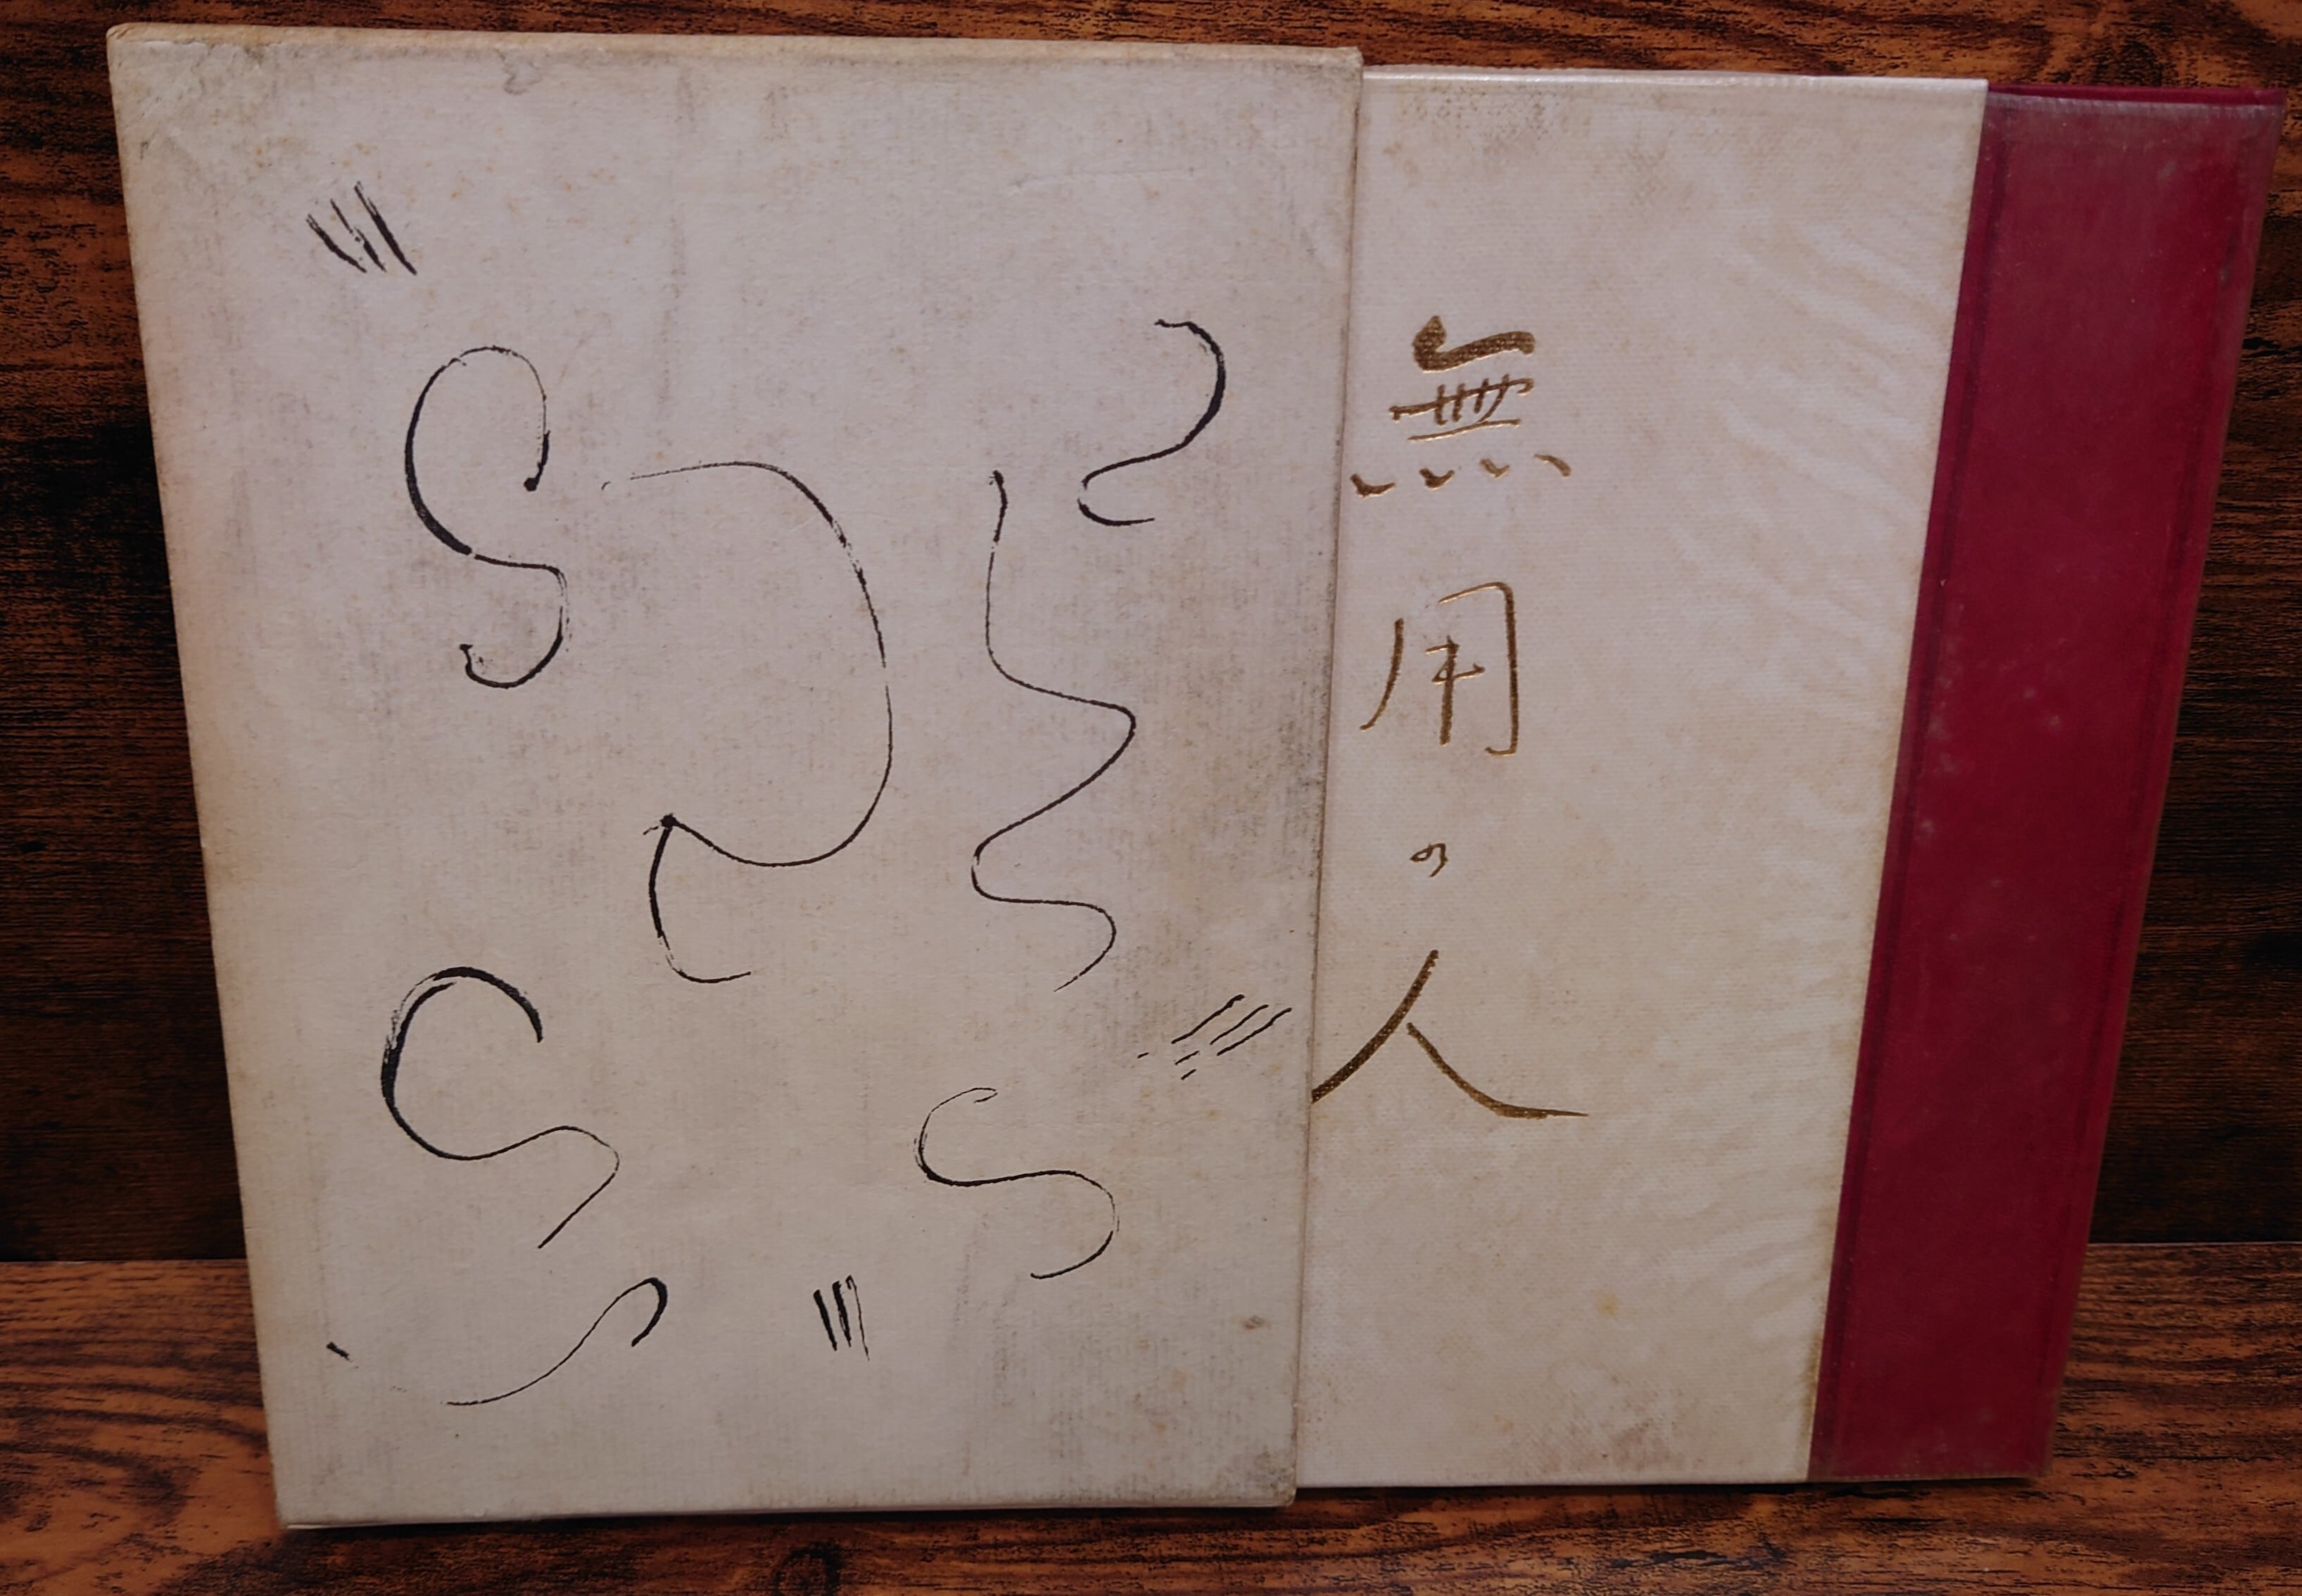 無用の人